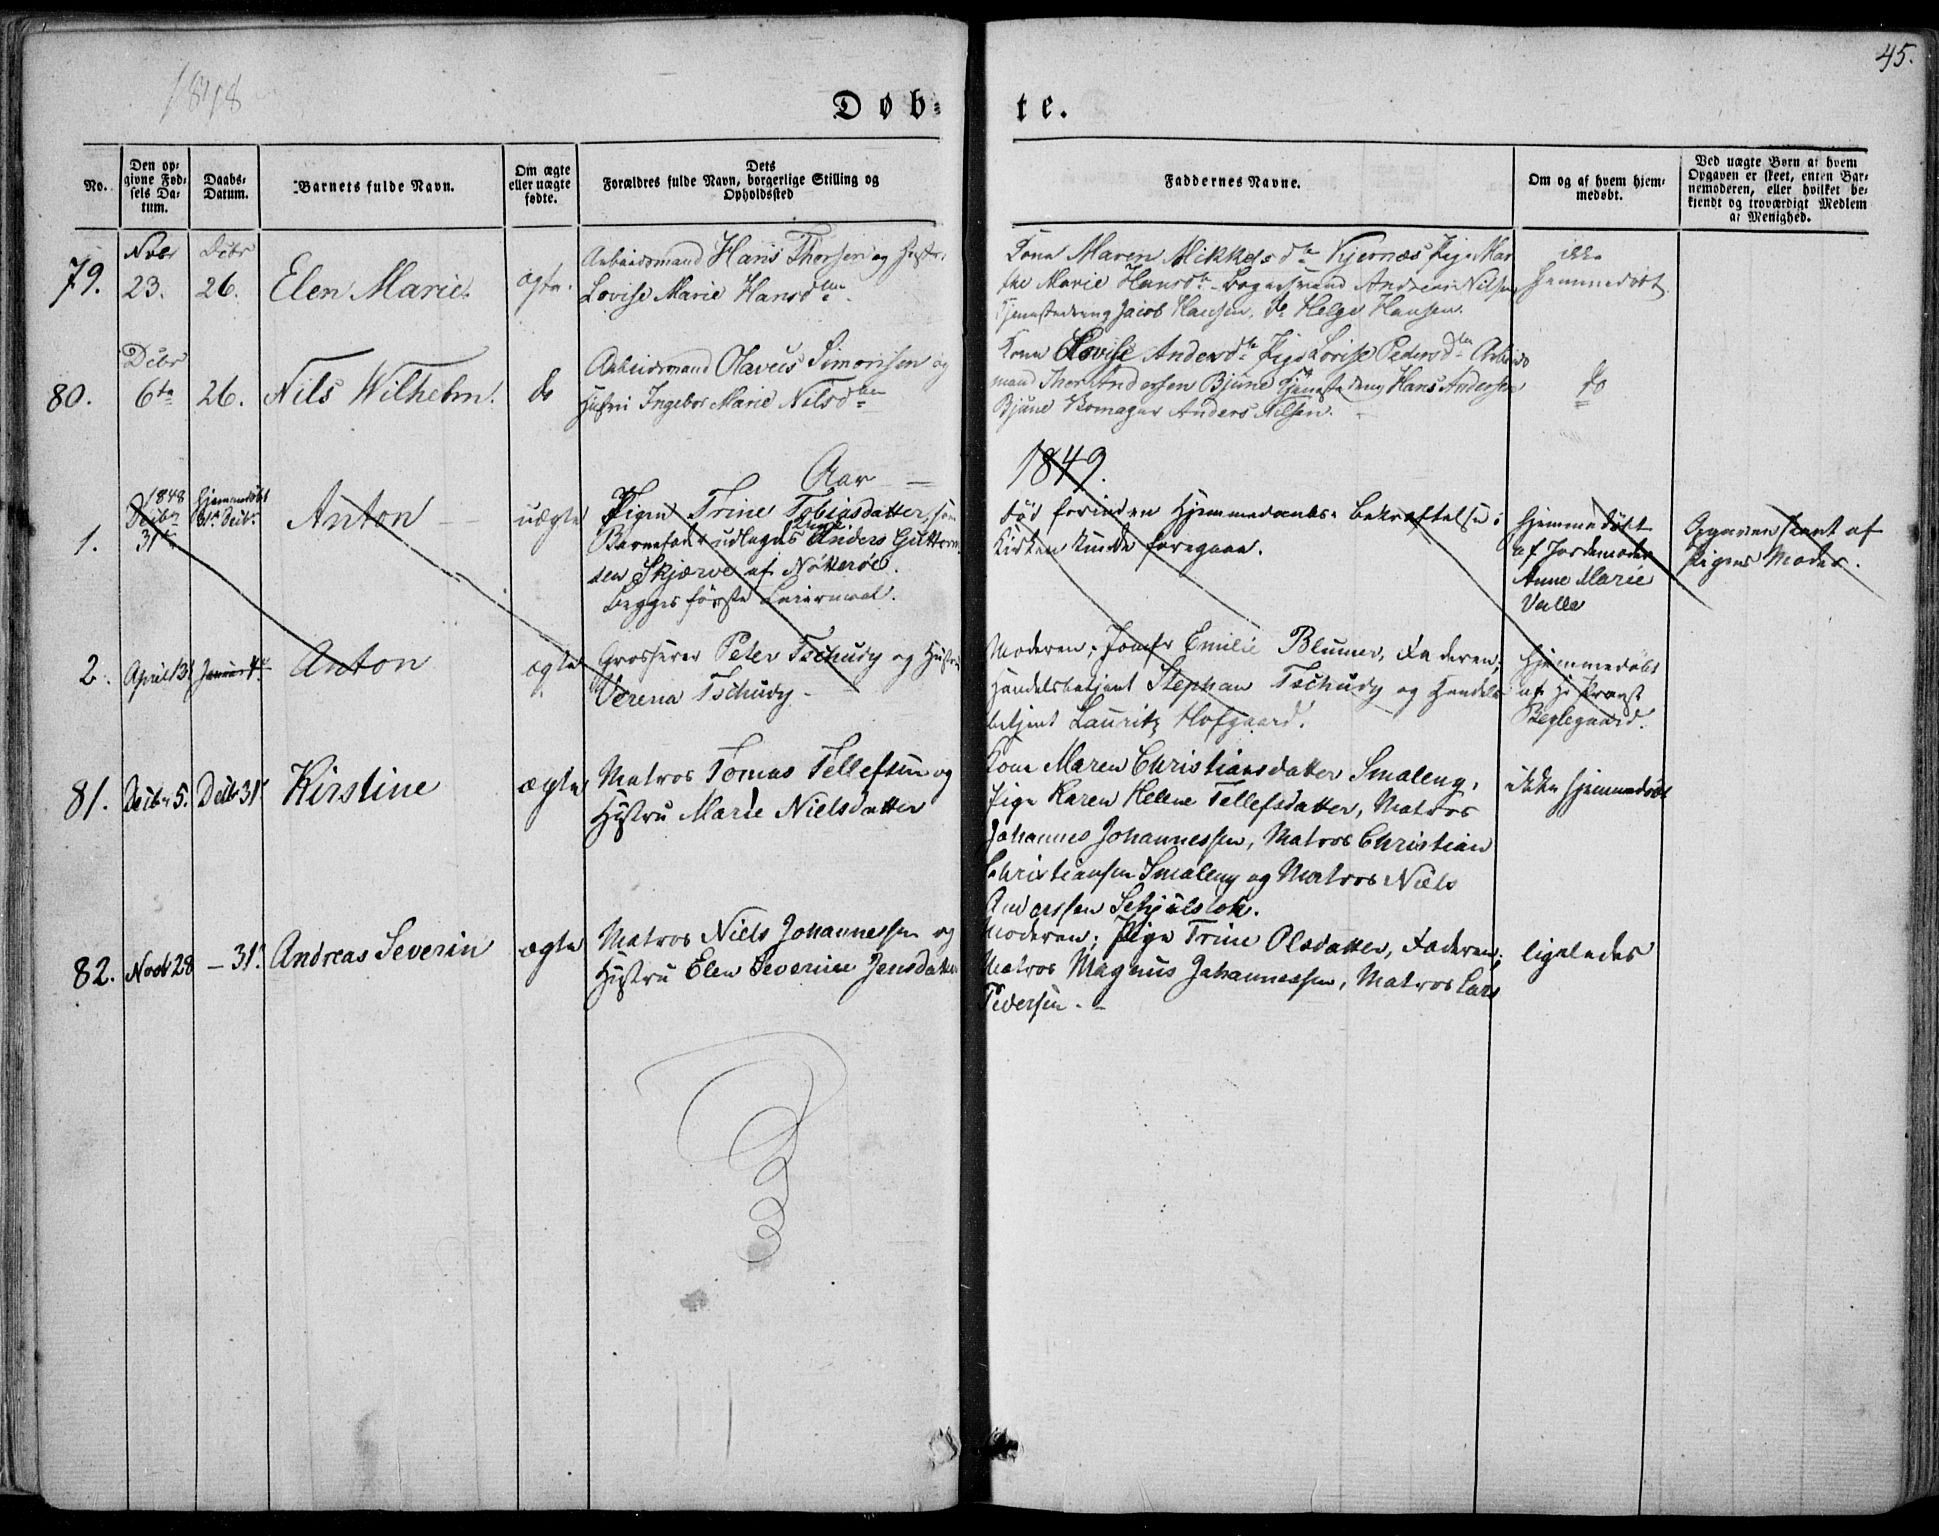 1848
45.
Døb- te.
No.
Den op-
givne Fød-
sels Da-
tum.
Daabs-
Datum.
Barnets fulde Navn.
Om ægte
eller uægte
fødte.
Dets
Forældres fulde Navn, borgerlige Stilling og
Opholdssted
Faddernes Navne.
Om og af hvem hjem-
medøbt.
Ved uægte Børn af hvem
Opgaven er skeet, enten Bar-
nemoderen, eller hvilket be-
kjendt og troværdigt Medlem
af Menighed.
79.
Novbr
23.
Decbr
26.
Elen Marie.
ægte.
Arbeidsmand Hans Thorsen og Hustr.
Lovise Marie Hansdtn.
Kone Maren Mikkelsdtr Kjernæs Pige Mar
the Marie Hansdtr Andreas Nilsen
Tjenestedreng Jacob Hansen, do Helge Hansen.
ikke
hjemmedøbt
80.
Decbr
6te
26.
Nils Wilhelm.
do
Arbeidsmand Olavus Simonsen og
Hustru Ingebor Marie Nilsdtr
Kone Lovise Andersdtr Pige Lovise Pedersdtr Arbeids
mand Thor Andersen Bjune Tjenestedreng Hans Andersen
Bjune Anders Nilsen.
do
Aar 1849.
1.
1848
Decbr
31te
Hjemmedøbt
31te Decbr
Anton
uægte
Pigen Trine Tobiasdatter, som
Barnefader udlagdes Anders Guttorm
sen Skjærve af Nøtterøe.
Begges første Leiermaal.
Død forinden Hjemmedaabs-Bekræftelse i
Kirken kunde foregaae.
Hjemmedøbt
af Jordemoder
Anne Marie
Valle
Opgaven skeet af
Pigens Moder.
2.
April 31
Januar 4de
Anton
ægte
Grosserer Peter Tschudy og Hustru
Verena Tschudy.
Moderen; Jomfr Emilie Blumer, Faderen;
Handelsbetjent Stephan Tschudy og Handels-
betjent Lauritz Hofgaard.
Hjemmedøbt
af Hr Provst
Beglegaard.
81.
Decbr 5.
Decbr 31.
Kirstine
ægte
Matros Tomas Tellefsen og
Hustru Marie Nielsdatter
Kone Maren Christiansdatter Smaleng,
Pige Karen Helene Tellefsdatter, Matros
Johannes Johannessen, Matros Christian
Christiansen Smaleng og Matros Niels
Anderssen
ikke hjemmedøbt
82.
Novb 28
— 31.
Andreas Severin
ægte
Matros Niels Johannessen og
Hustru Elen Severine Jensdatter
Moderen; Pige Trine Olsdatter, Faderen;
Matros Magnus Johannessen, Matros Lars
Pedersen.
ligeledes